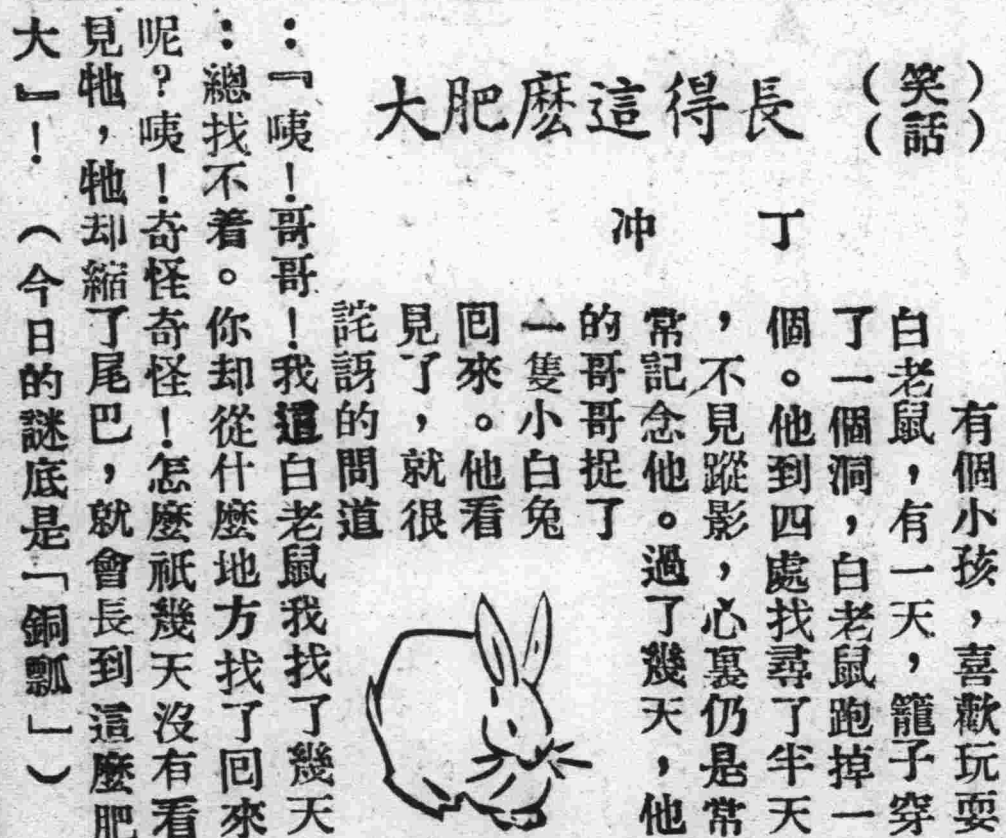 （笑話）
長得這麽肥大
丁冲
有個小孩，喜歡玩耍
白老鼠，有一天，籠子穿
了一個洞，白老鼠跑掉一
個。他到四處找尋了半天
，不見蹤影，心裏仍是常
常記念他。過了幾天，他
的哥哥捉了
一隻小白兔
回來。他看
見了，就很
詫訝的問道
：『咦！哥哥！我這白老鼠我找了幾天
：總找不着。你却從什麽地方找了回來
呢？咦！奇怪奇怪！怎麽祇幾天沒有看
見牠，牠却縮了尾巴，就會長到這麽肥
大』！（今日的謎底是「銅瓢」）